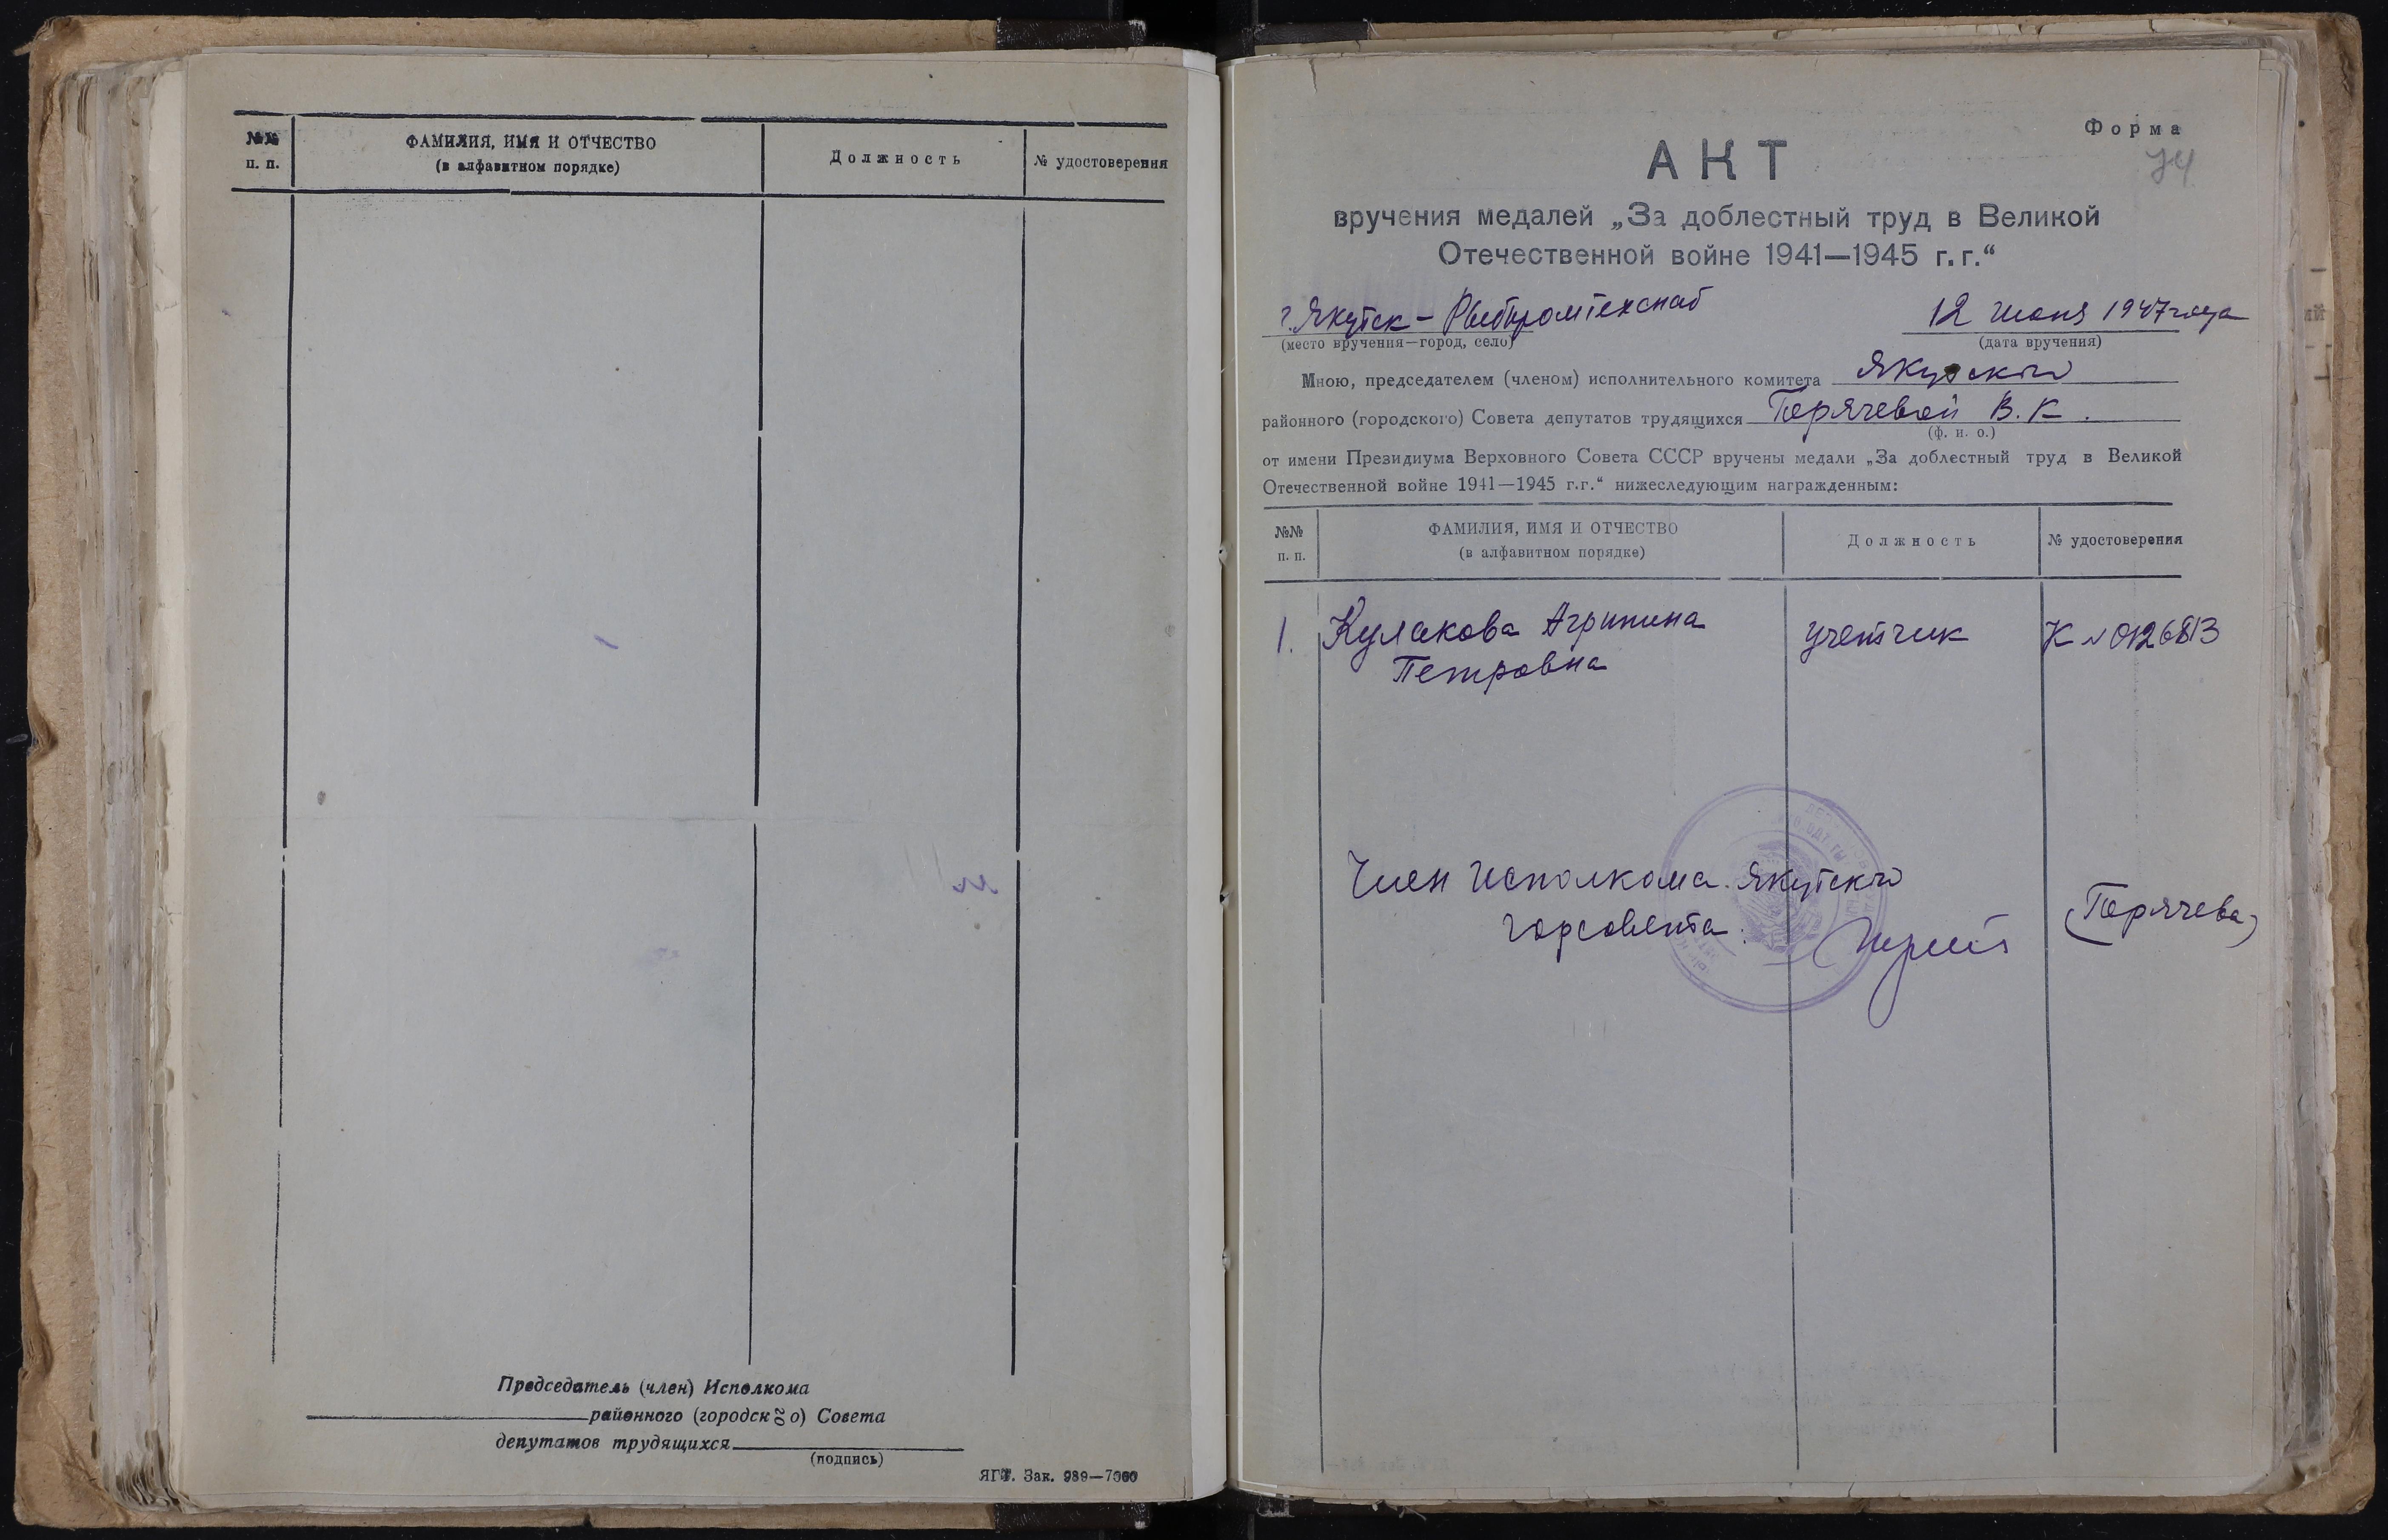 №№
п. п.
ФАМИЛИЯ, ИМЯ И ОТЧЕСТВО
(в алфавитном порядке)
Должность
№ удостоверения
Председатель (член) Исполкома
районного (городского) Совета
депутатов трудящихся
(подпись)
ЯГТ. Зак. 989—7000
Форма
74
АКТ
вручения медалей „За доблестный труд в Великой
Отечественной войне 1941—1945 г.г.“
г. Якутск - Рыбпромтехснаб
12 июня 1947 года
(место вручения—город, село)
(дата вручения)
Мною, председателем (членом) исполнительного комитета Якутского
районного (городского) Совета депутатов трудящихся Горячевой В. К.
(ф. и. о.)
от имени Президиума Верховного Совета СССР вручены медали „За доблестный труд в Великой
Отечественной войне 1941—1945 г.г.“ нижеследующим награжденным:
№№
п. п.
ФАМИЛИЯ, ИМЯ И ОТЧЕСТВО
(в алфавитном порядке)
Должность
№ удостоверения
1. Кулакова Агрипина учетчик К № 0126813
Петровна
Член Исполкома Якутского
горсовета: (Горячева)